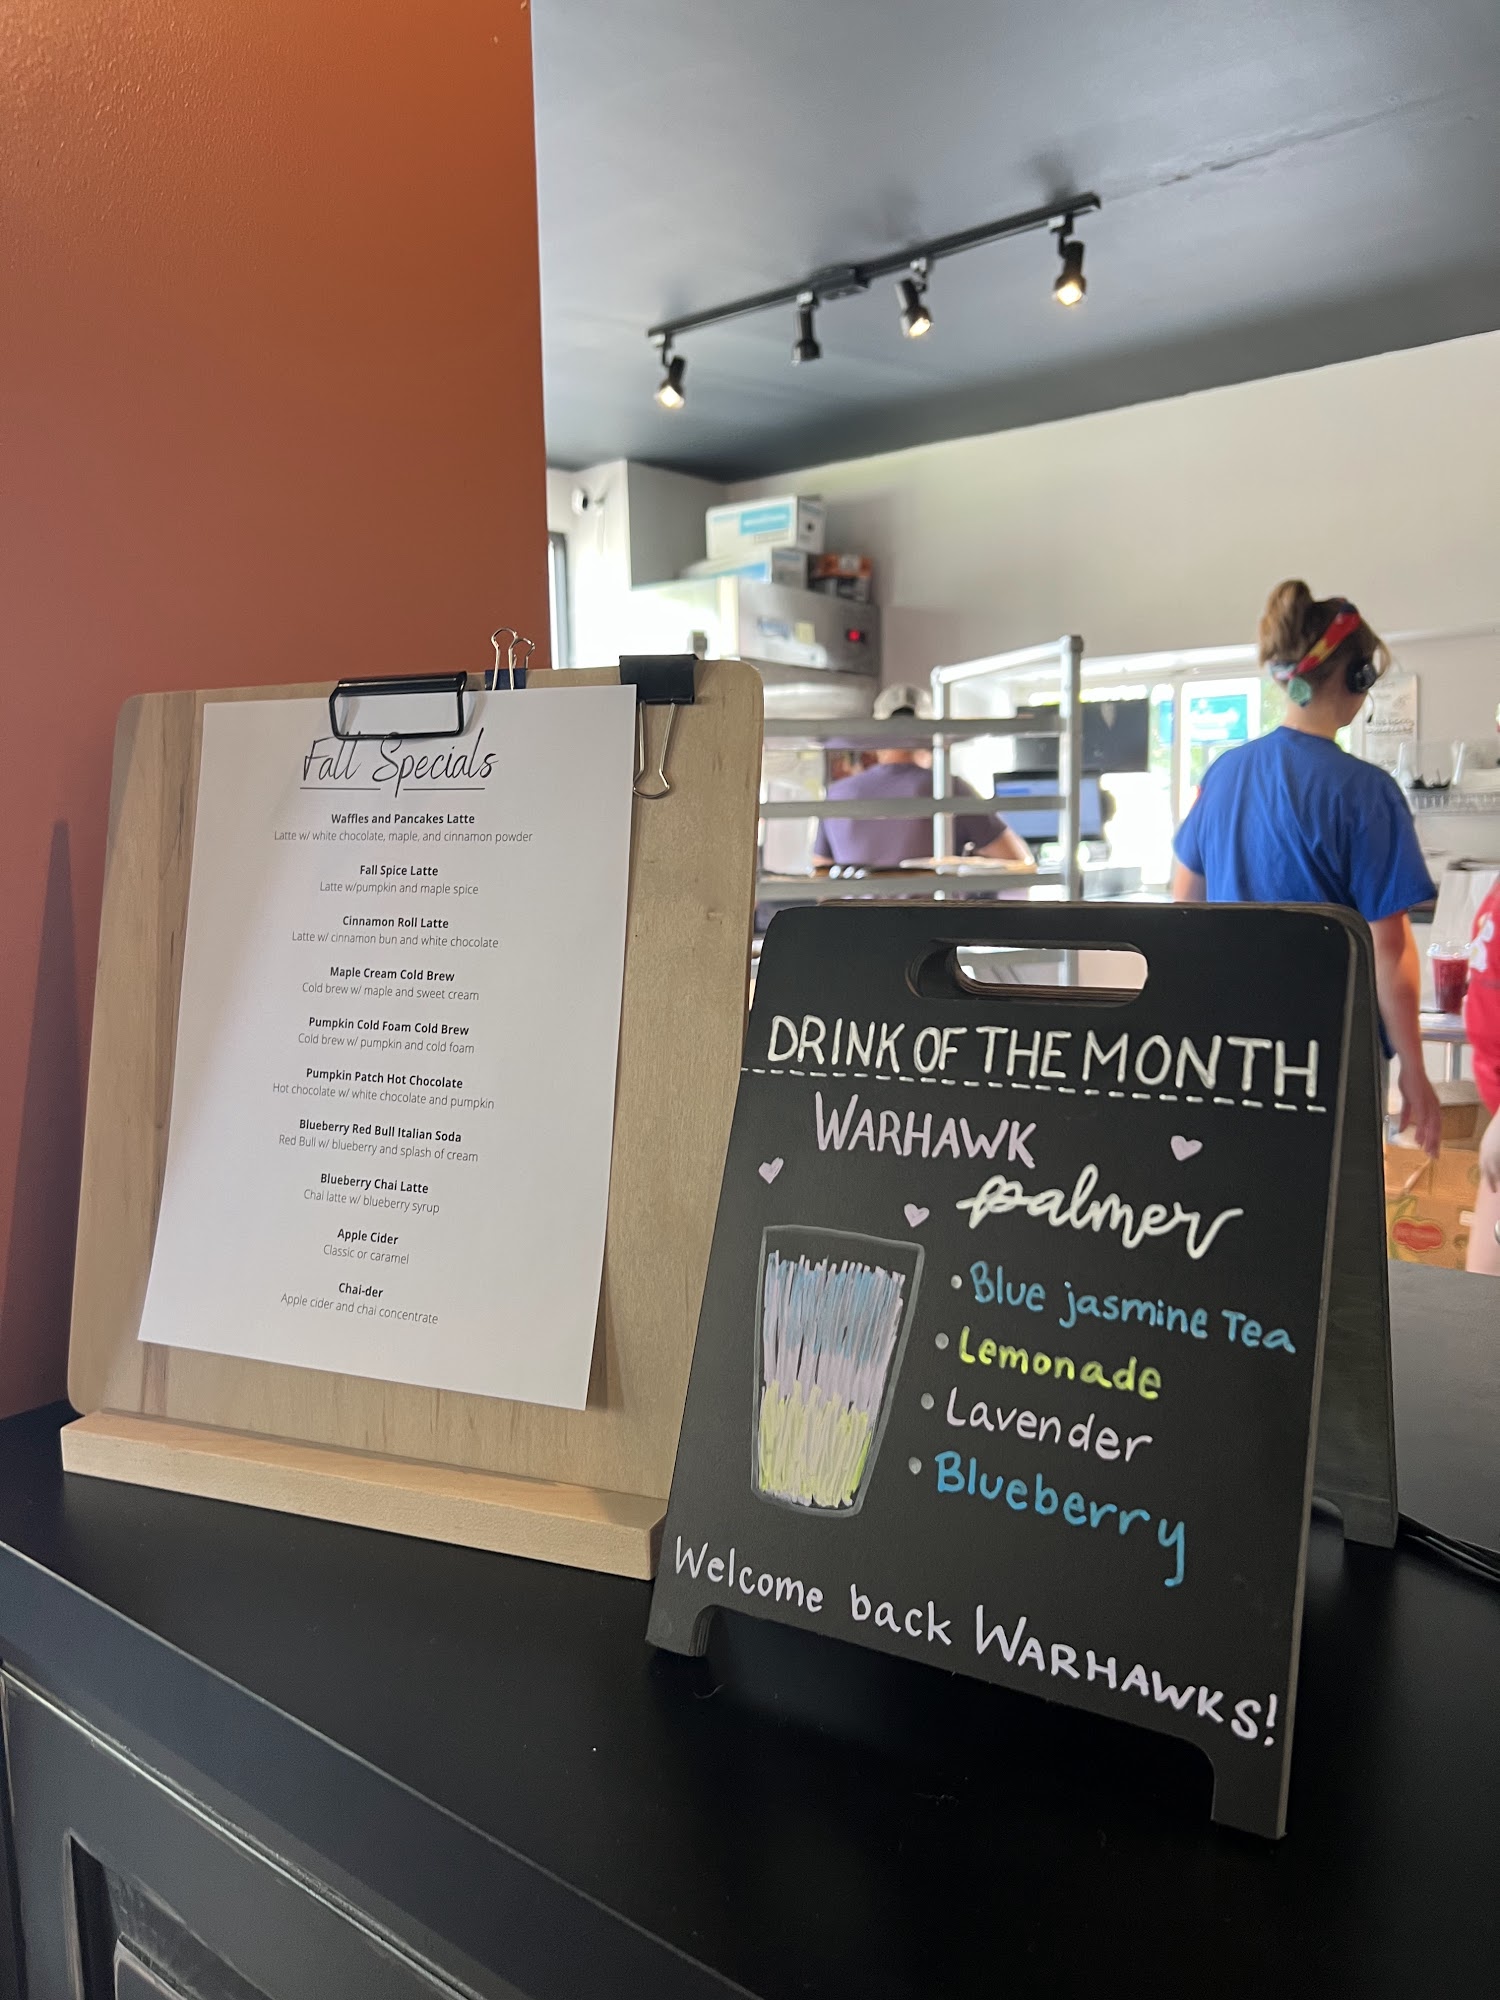 Fall Specials
Waffles and Pancakes Latte
Latte w/ white chocolate, maple, and cinnamon powder
Fall Spice Latte
Latte w/pumpkin and maple spice
Cinnamon Roll Latte
Latte w/ cinnamon bun and white chocolate
Maple Cream Cold Brew
Cold brew w/ maple and sweet cream
Pumpkin Cold Foam Cold Brew
Cold brew w/ pumpkin and cold foam
Pumpkin Patch Hot Chocolate
Hot chocolate w/ white chocolate and pumpkin
Blueberry Red Bull Italian Soda
Red Bull w/ blueberry and splash of cream
Blueberry Chai Latte
Chai latte w/ blueberry syrup
Apple Cider
Classic or caramel
Chai-der
Apple cider and chai concentrate
DRINK OF THE MONTH
WARHAWK
palmer
• Blue jasmine Tea
• Lemonade
• Lavender
• Blueberry
Welcome back WARHAWKS!